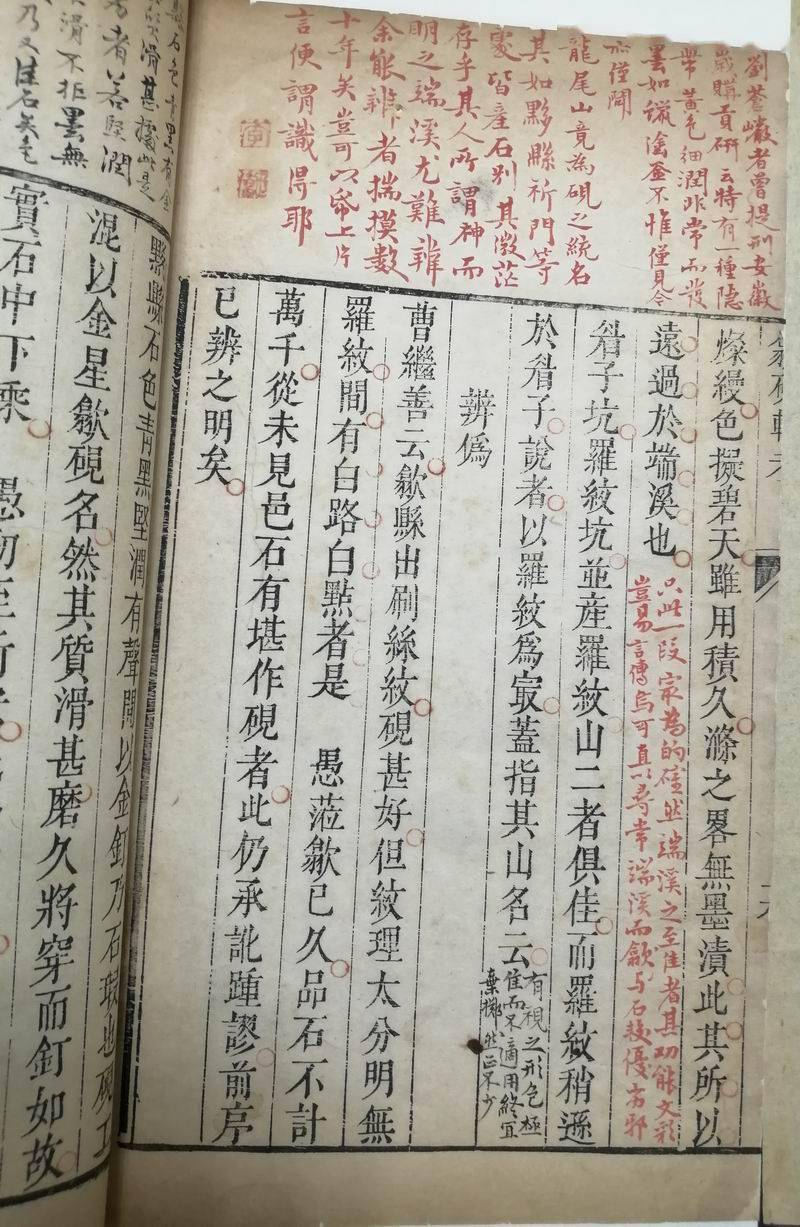 劉蒼巖者曾提刑安徽
歲購貢研云特有一種隱
帶黃色細潤非常而發
墨如鏾塗釜不惟僅見今
亦僅聞
龍尾山竟為硯之統名
其如黟縣祈門等
處皆產石別其微茫
存乎其人所謂神而
明之端溪尤難辨
余能辨者揣摸數
十年矣豈可以帋上片
言便謂識得耶
燦縵色擬碧天雖用積久滌之畧無墨漬此其所以
遠過於端溪也
只此一段宲為的確然端溪之至佳者其功能文彩
豈易言傳烏可直以尋常端溪而歙与石較優劣邪
眉子坑羅紋坑並産羅紋山二者俱佳而羅紋稍遜
於眉子說者以羅紋爲㝡蓋指其山名云
有硯之形色極
佳而不適用終宜
棄擲然正不少
辨爲
曹繼善云歙縣出刷絲紋硯甚好但紋理太分明無
羅紋間有白路白㸃者是 愚蒞歙已久品石不計
萬千從未見邑石有堪作硯者此仍承訛踵謬前序
已辨之明矣
黟縣石色青黑堅潤有聲間以金釘乃石瑕也硯工
混以金星歙硯名然其質滑甚磨久將穿而釘如故
實石中下乘